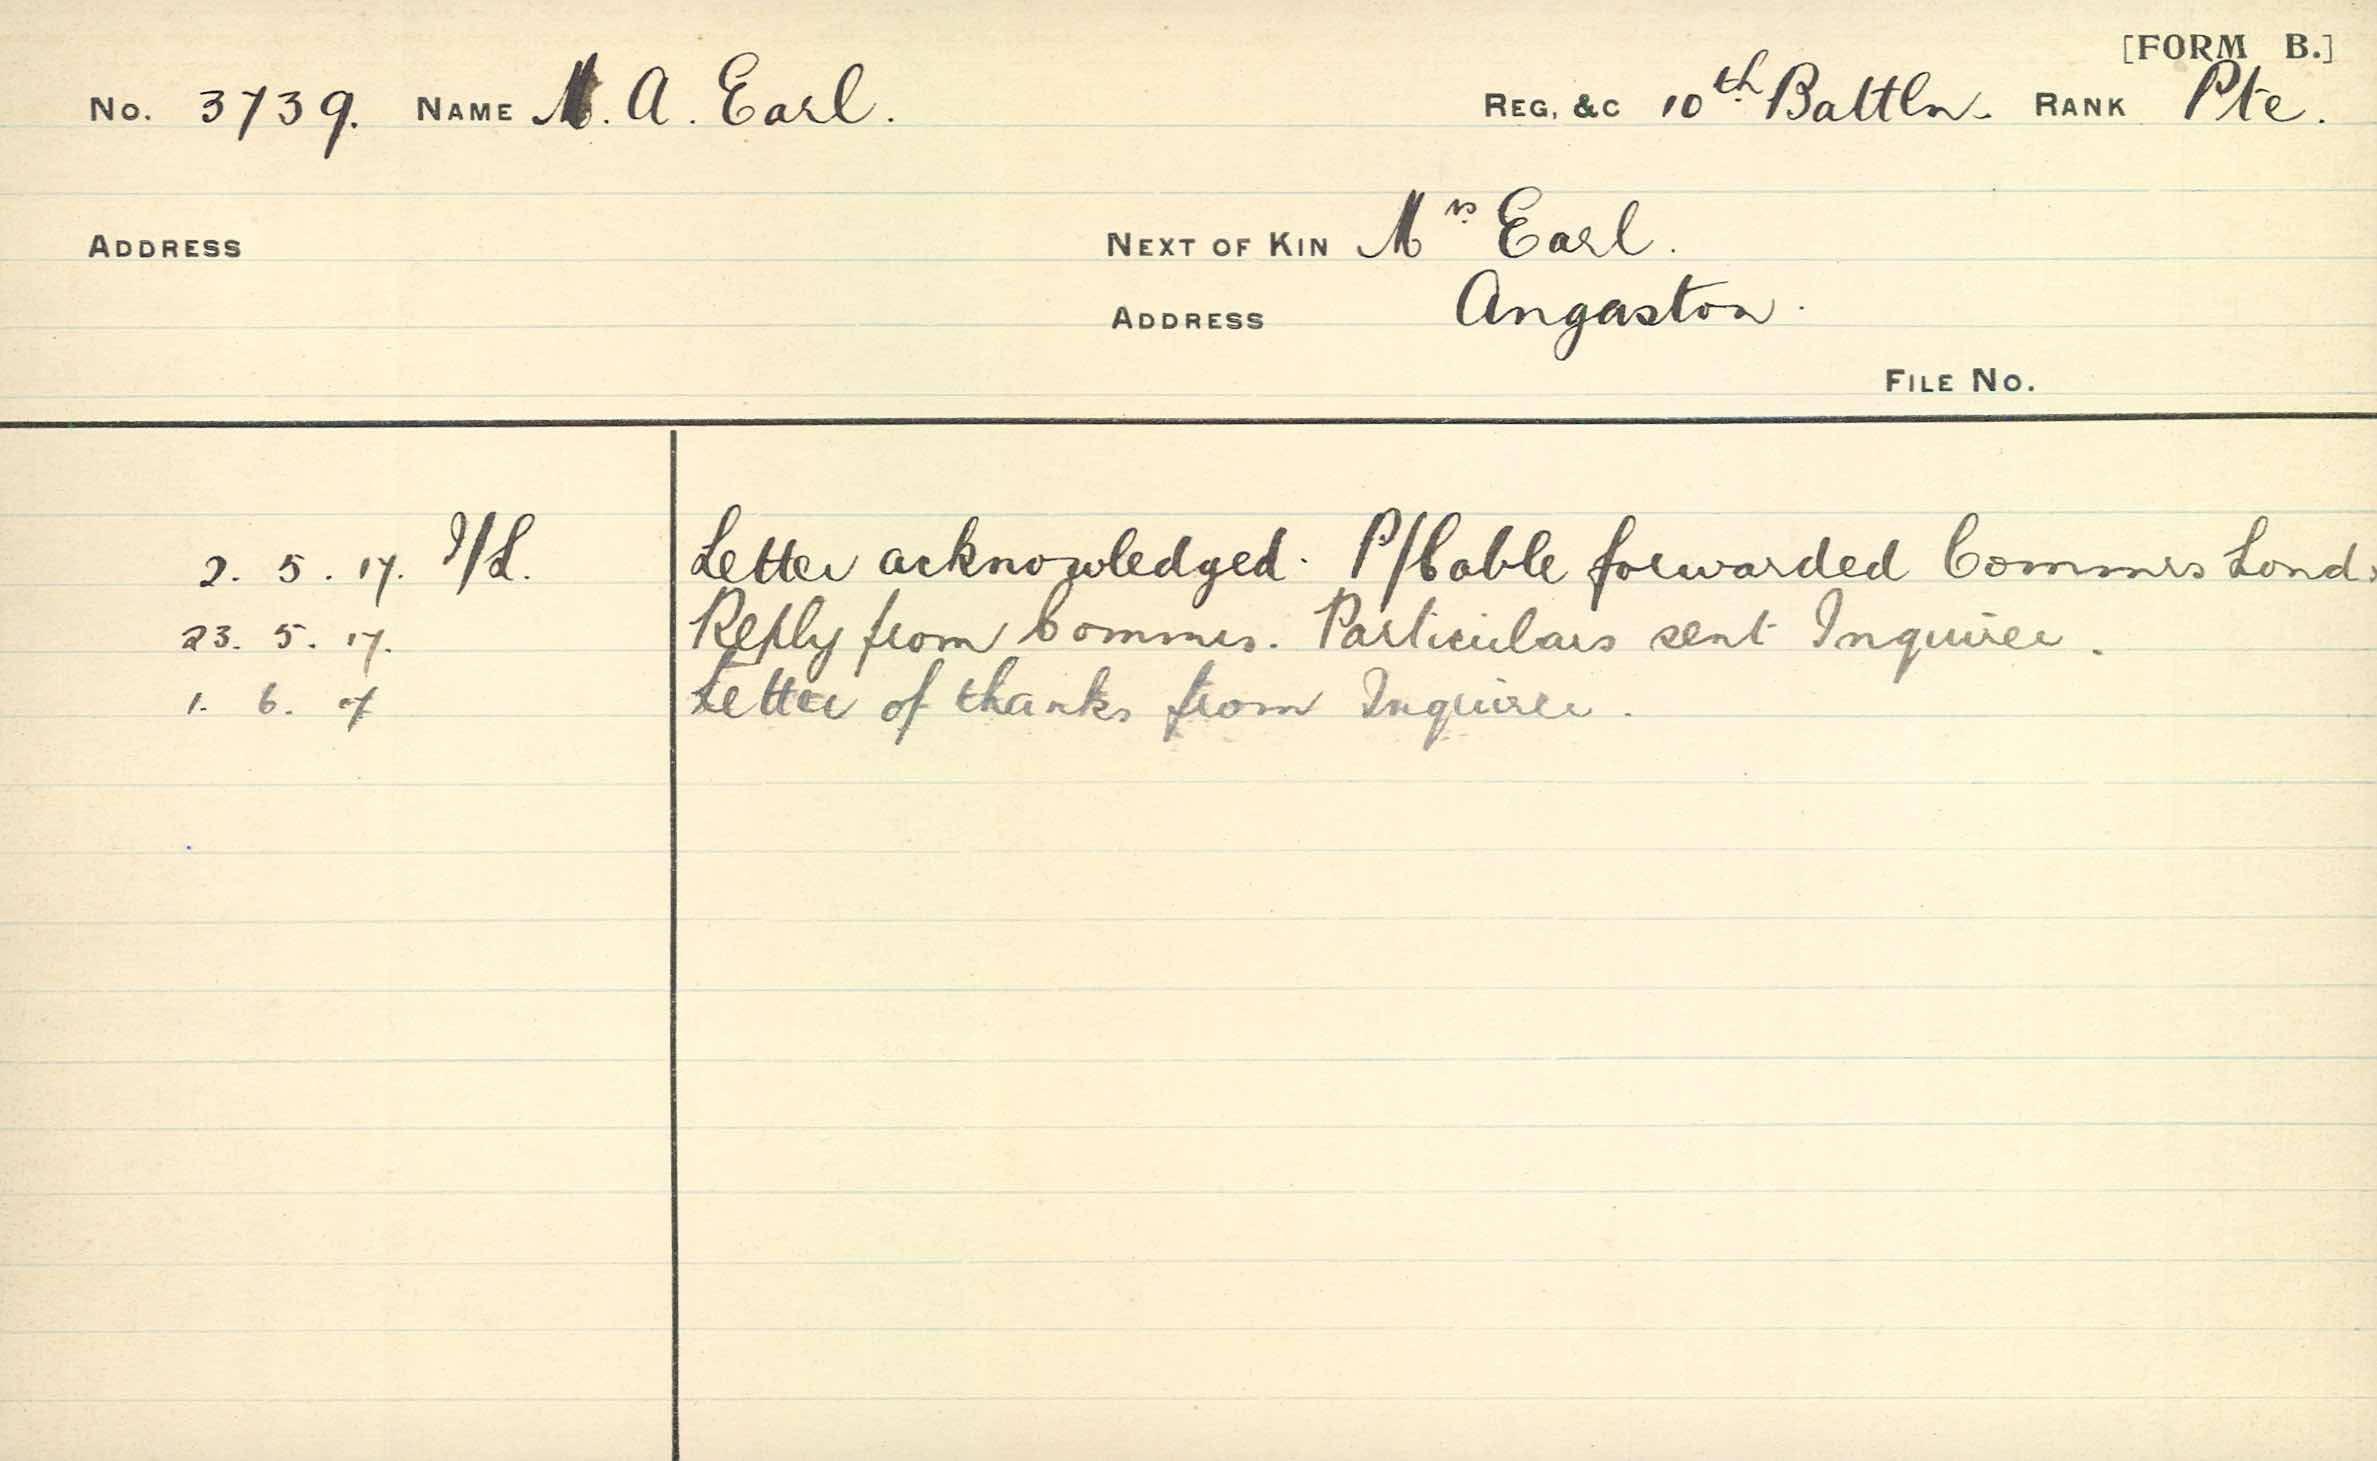 [FORM B.]
No. 3739. NAME M. A. Earl. REG, &c 10th Battln. RANK Pte.
ADDRESS NEXT OF KIN Mrs Earl.
ADDRESS Angaston.
FILE No.
2. 5. 17. I/L. Letter acknowledged. P/Cable forwarded Commrs Lond.
23. 5. 17. Reply from Commrs. Particulars sent Inquirer.
1. 6. 17 Letter of thanks from Inquirer.